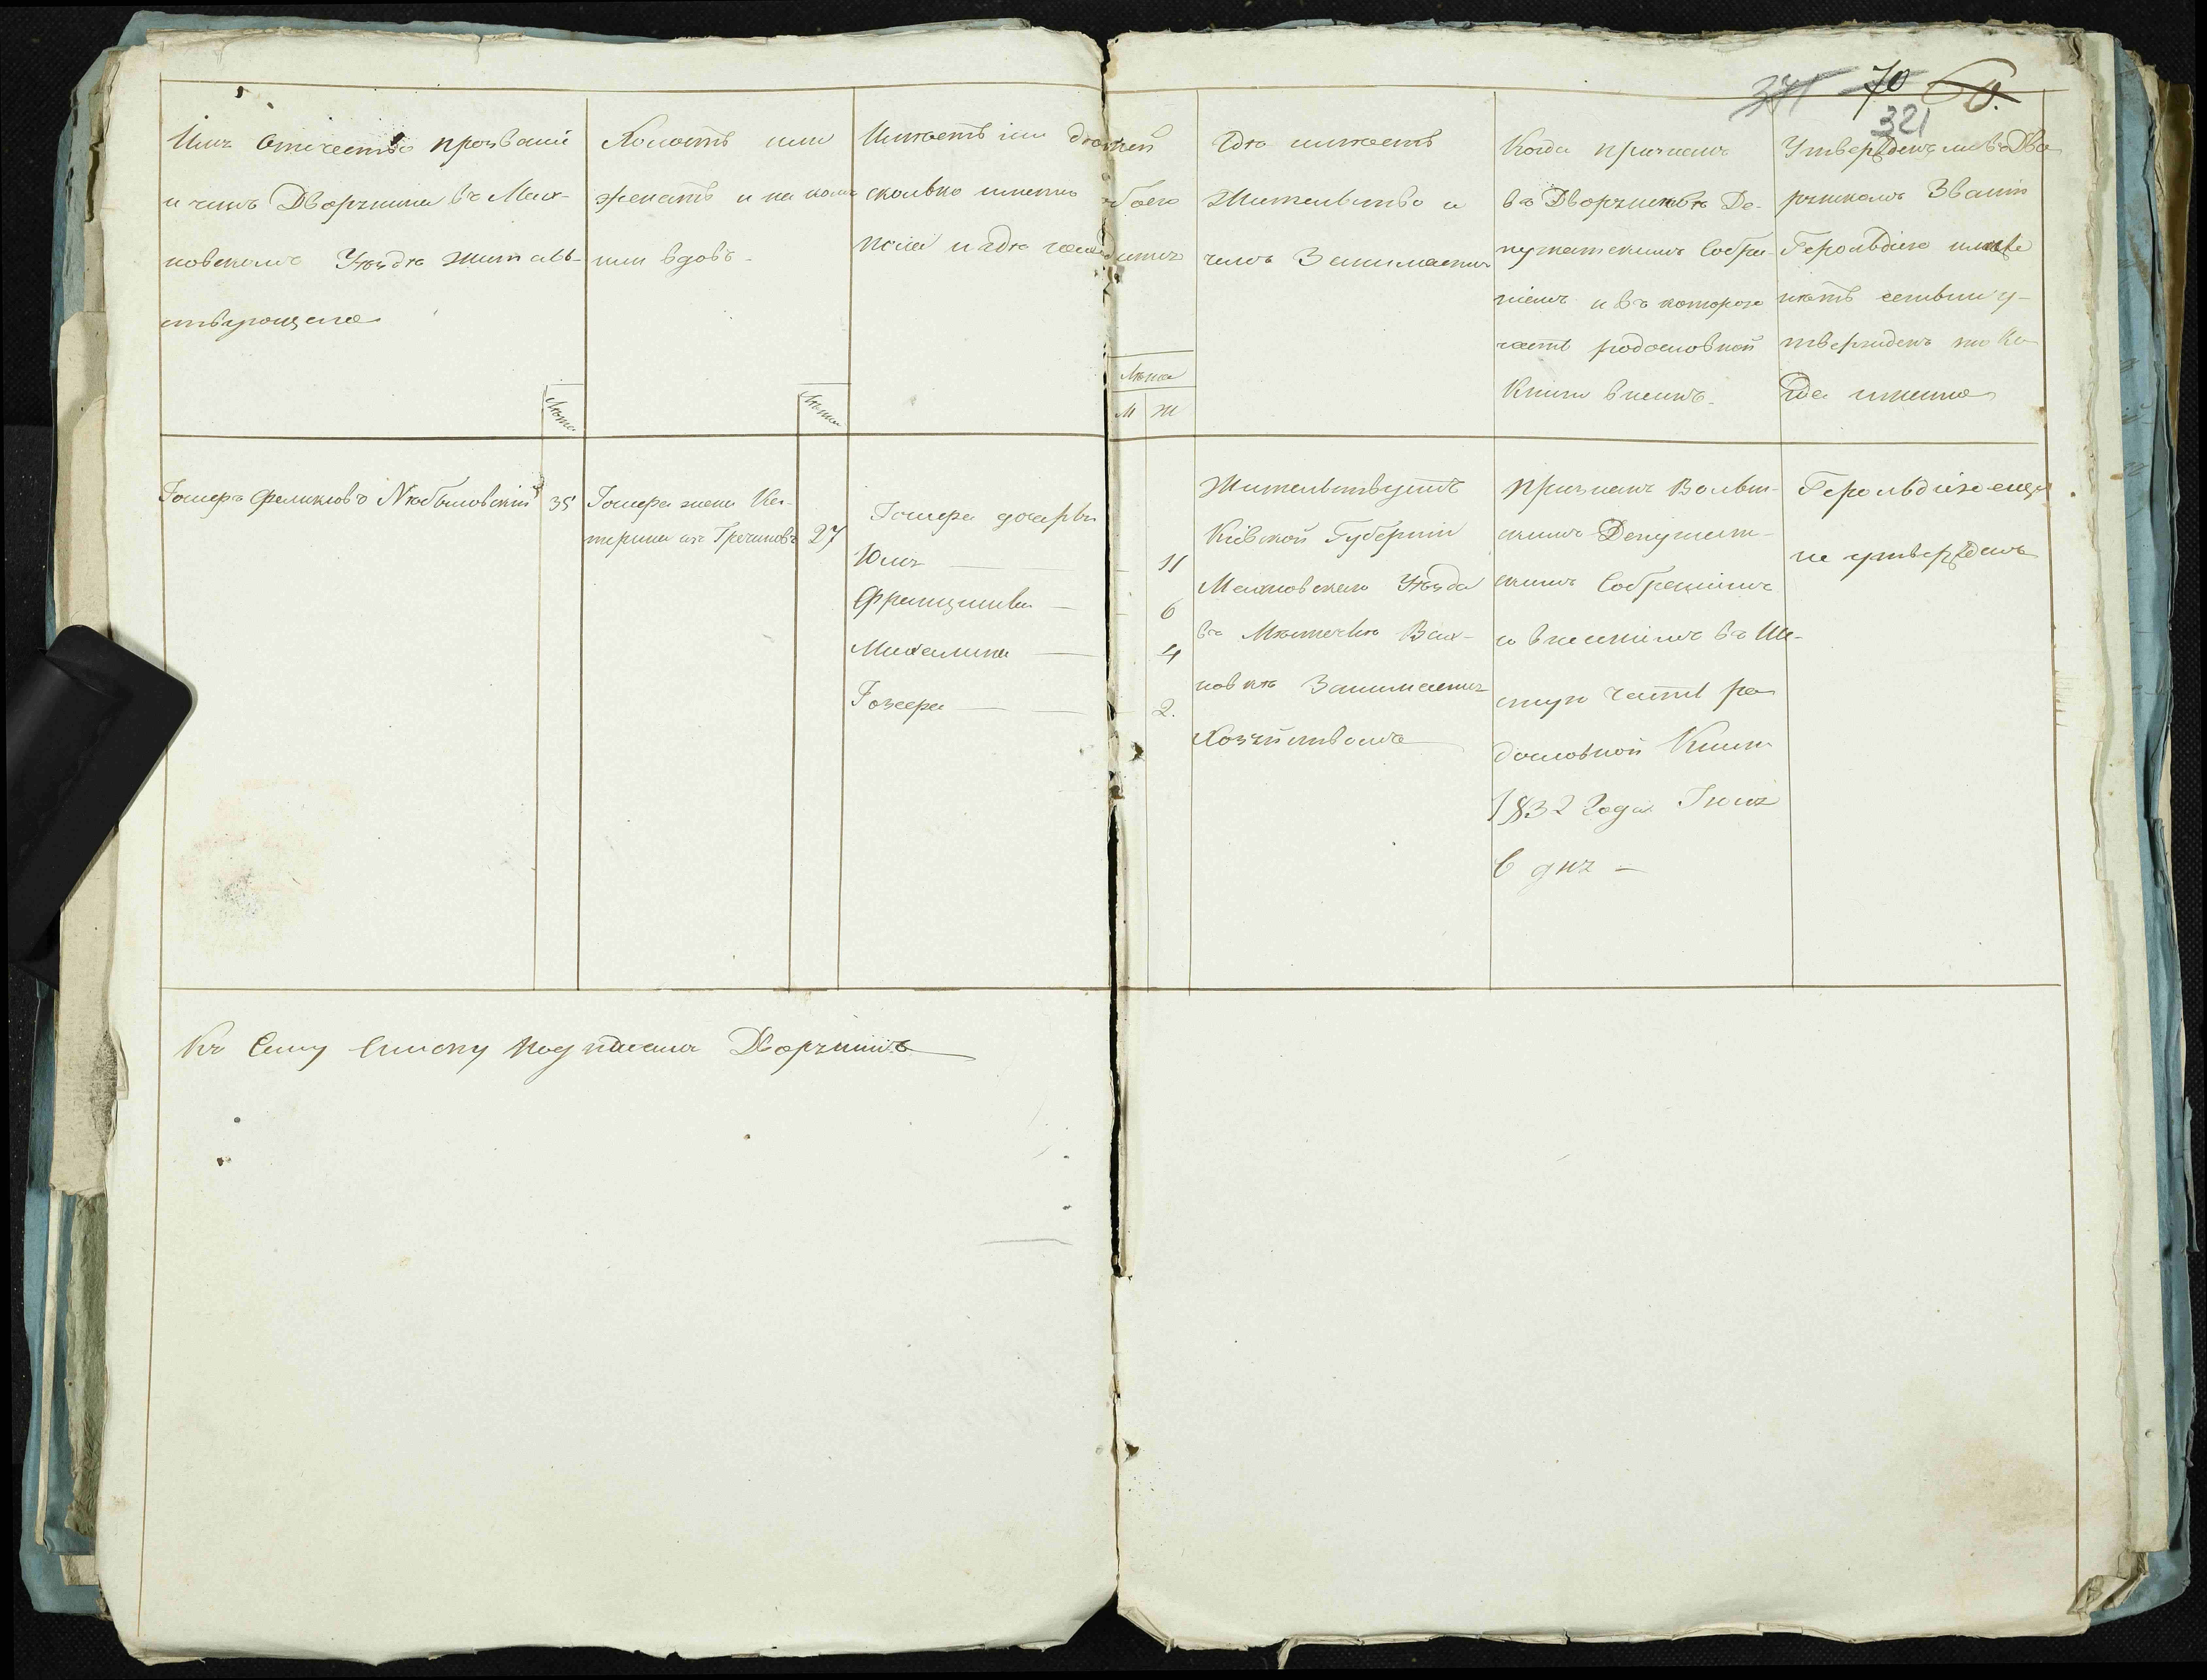 371 70 60.
321
Имя Отечество прозваніе
и чинъ Дворянина въ Мах-
новскомъ Уѣздѣ жительъ-
ствующаго
Лѣта
Холостъ или
женатъ и на комъ
или вдовъ.
Лѣта
Имѣетъ ли дѣтей
сколько именно обоего
пола и гдѣ находятся
Лѣта
М Ж
Гдѣ имѣетъ
Жительство и
чемъ Занимается
Когда признанъ
въ Дворянствѣ Де-
путатскимъ Собра-
ніемъ и въ которою
часть родословной
Книги внесенъ.
Утвержденъ ли въ Дво
рянскомъ Званіи
Герольдіею или
нѣтъ естьли у-
твержденъ то Ко
гда именно
Гоцеръ Феликсовъ Любыловскій 35
Гоцера жена Ка-
терина изъ Грочинов 27
Гоцера дочери
Юлія 11
Францишка 6
Михалина 4
Гозефа 2.
Жительствуетъ
Кіевской Губерніи
Махновскаго Уѣзда
въ Мѣстечкѣ Вах-
новкѣ Занимается
Хозяйствомъ
Признанъ Волын-
скимъ Депутат-
скимъ Собраніемъ
и внесеніемъ въ Ше-
стую часть ро
дословной Книги
1832 года Іюня
6 дня —
Герольдіею еще
не утвержденъ
Къ Сему списку подписался Дворянинъ